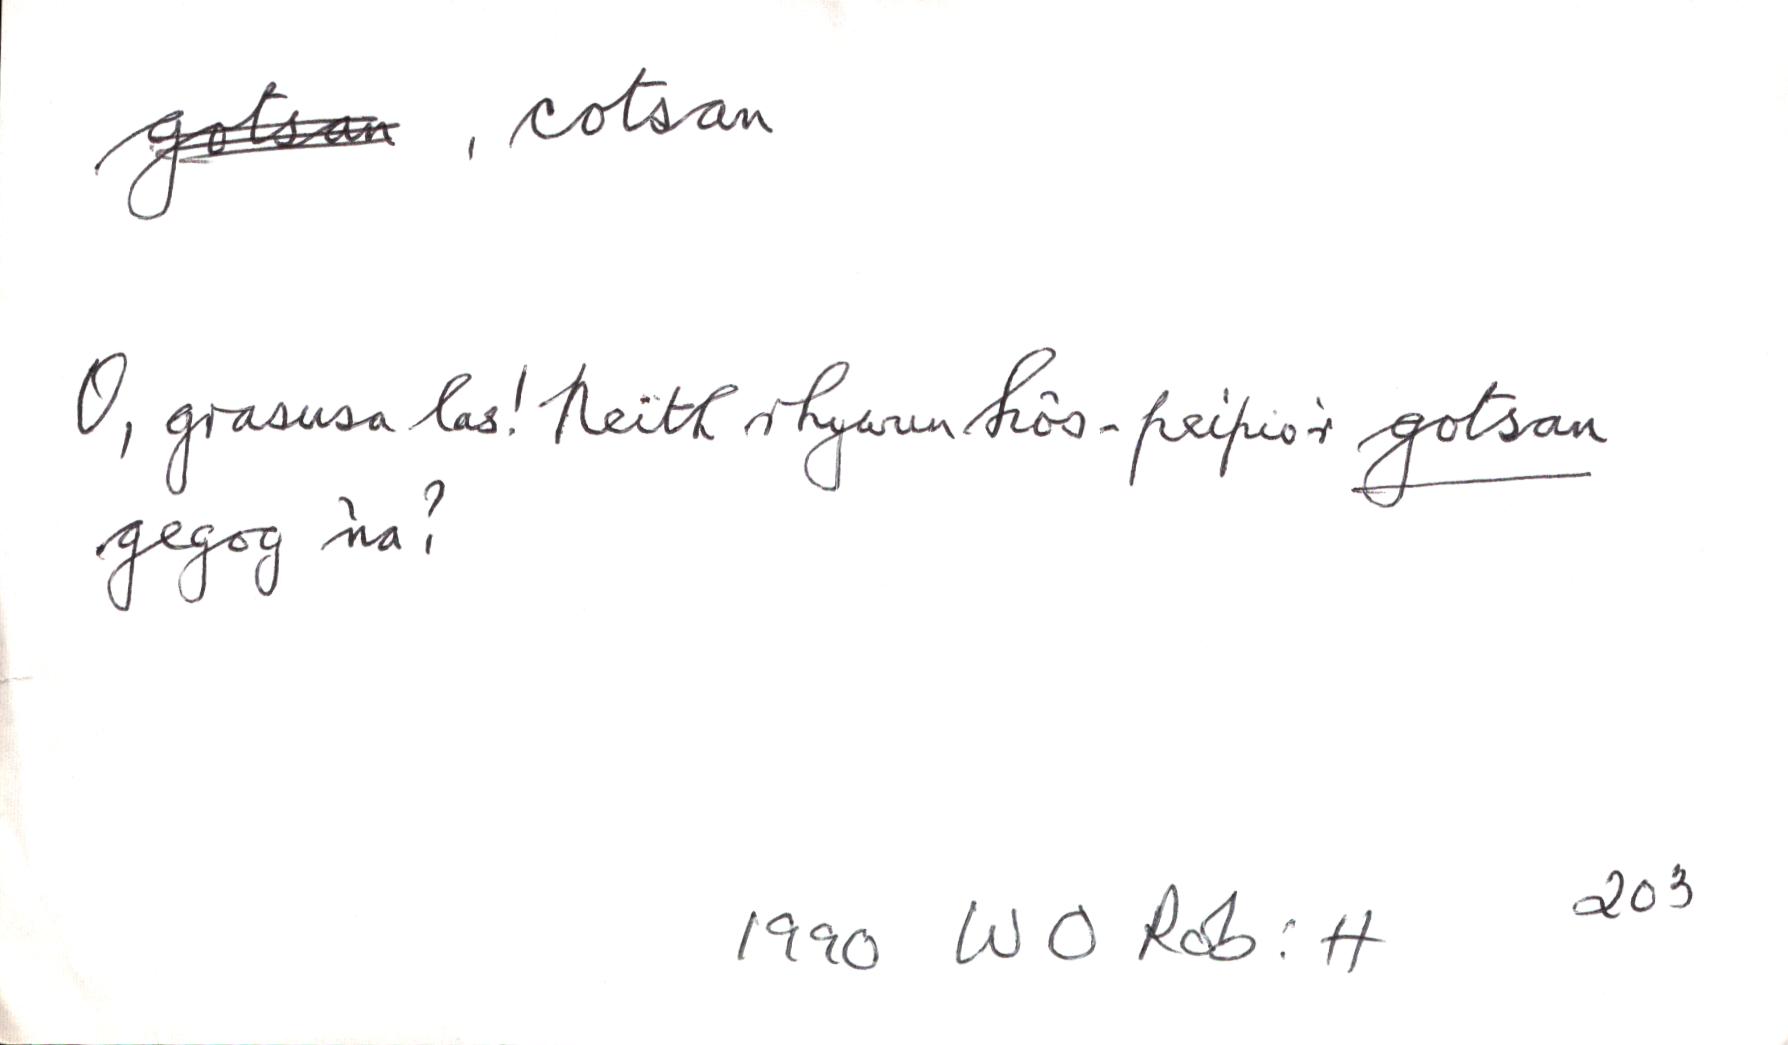 gotsan, cotsan
O, grasusa las! Neith rhywun hôs-peipio'r gotsan
gegog 'na?
203
1990 WO Rob: H